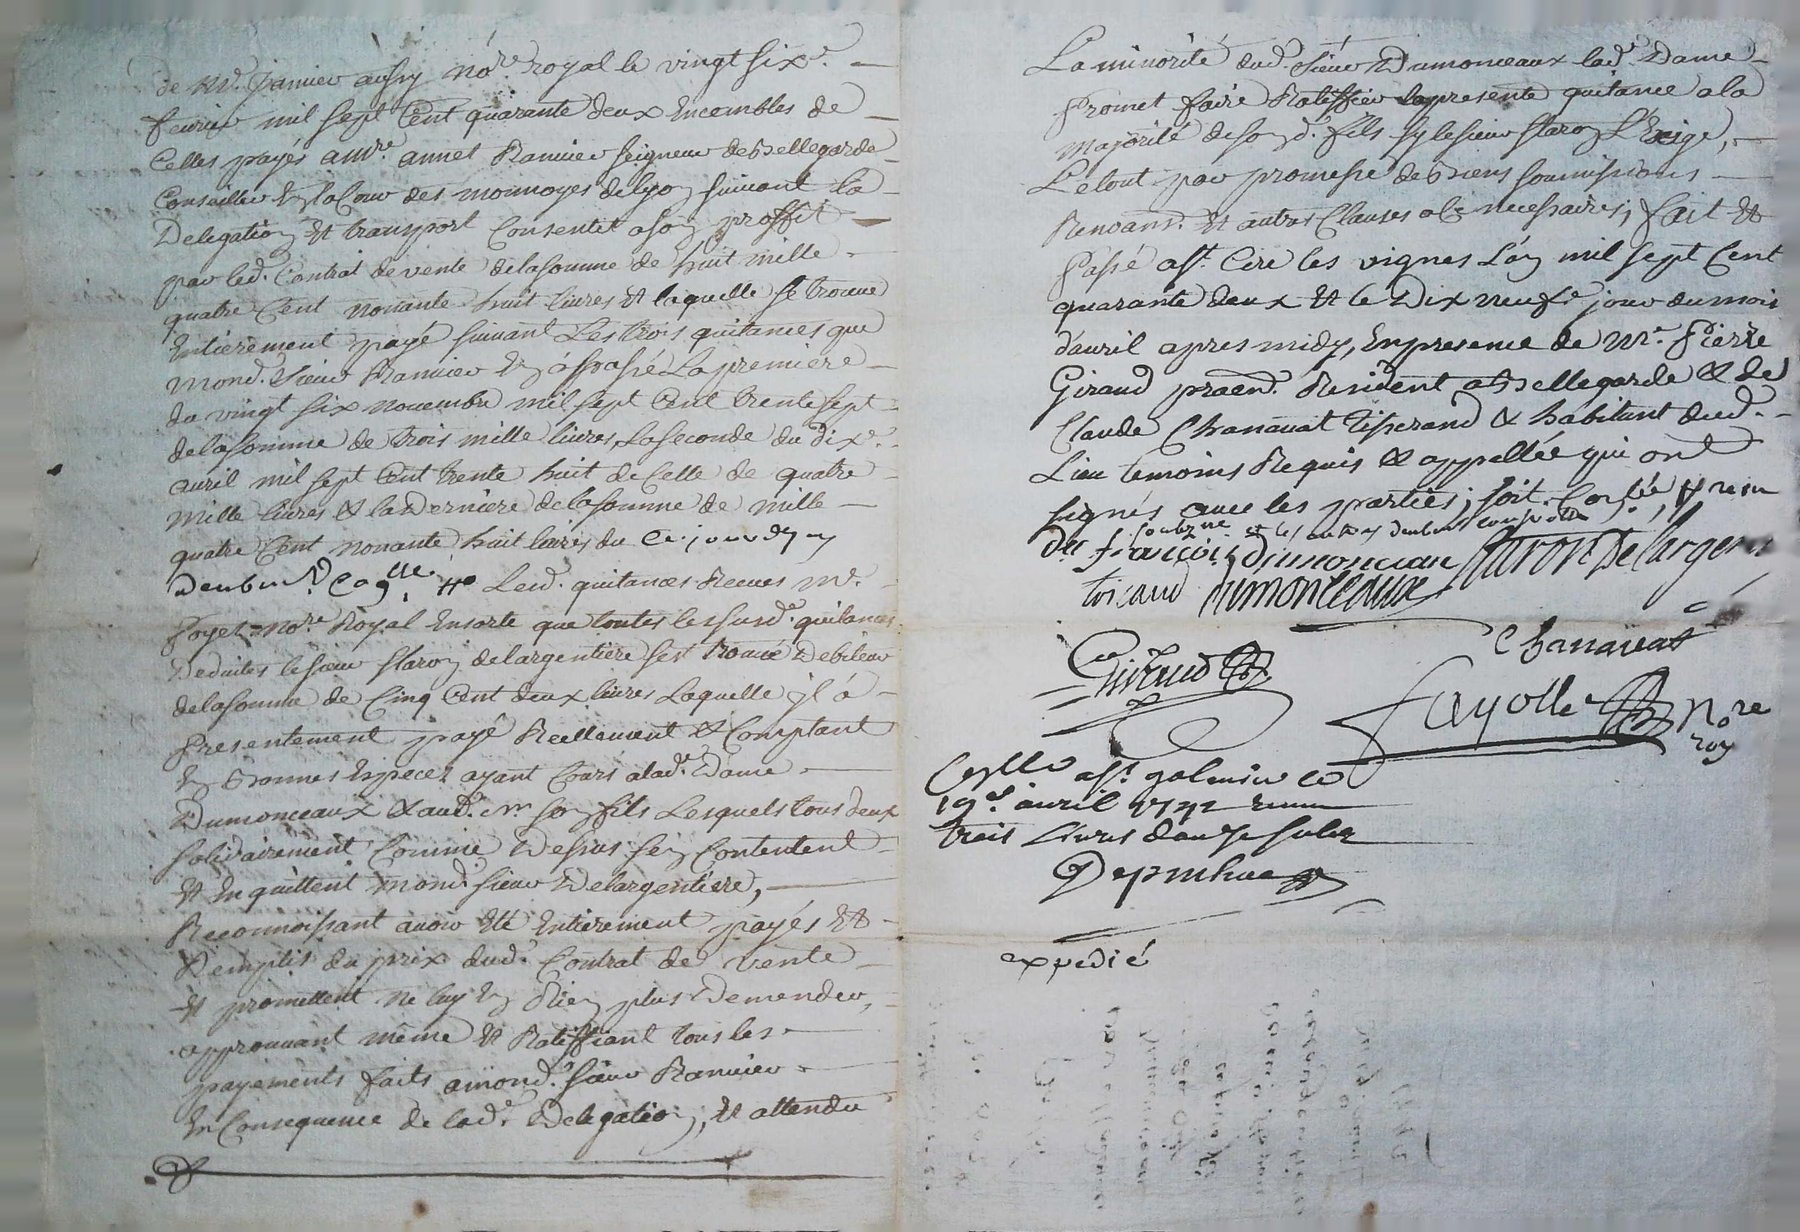 de Mr. Janvier ausy no.re royal le vingt six.e
fevrier mil sept Cent quarante deux Encembles de
Celles payés a Mr. annet Ranvier seigneur de Bellegarde
Conseiller En la Cour des monnoyes de lyon suivant la
Delegation et transport Consentit a son proffit
par led. Contrat de vente de la somme de huit mille
quatre Cent nonante huit livres et laquelle se trouve
Entierement payé suivant Les trois quitances que
mond. sieur Ranvier En a passé La premiere
du vingt six novembre mil sept Cent trente sept
de la somme de trois mille livres, La seconde du dix.e
avril mil sept Cent trente huit de Celle de quatre
mille livres & la Derniere de la somme de mille
quatre Cent nonante huit livres du Ce jourdhuy
Lesd. quitances Receues Me.
no.re Royal Ensorte que toutes les susd.e quitances
Deduites le sieur staron de largentiere s'est trouvé Debiteur
de la somme de Cinq Cent deux livres Laquelle jl a
presentement payé Reellement & Comptant
En Bonnes Especes ayant Cours a lad.e Dame
Dumonceaux & aud. sr. son fils Lesquels tous deux
solidairement Comme Dessus s'en Contentent
et En quittent mond. sieur Delargentiere,
Reconnoissant avoir Eté Entierement payés Et
Remplis du prix dud. Contrat de vente
et promettent ne luy En Rien plus Demender,
approuvant même et Ratiffiant tous les
payements faits a mond. sieur Ranvier
En Consequence de lad.e Delegation, et attendu
La minorité dud. sieur Dumonceaux lad.e Dame
promet faire Ratiffier la presente quitance a la
majorité de son d. fils sy le sieur staron L'Exige,
Le tout par promesse de Biens soumissions
Renons. et autres Clauses a Ce necessaires, fait et
Passé a St. Cire les vignes L'an mil sept Cent
quarante deux et le Dix neuf.e jour du mois
d'avril apres midy, En presence de Mr. Pierre
Giraud praticn. Resident a Bellegarde & de
Claude Chanavat Tisserand & habitant dud.
Lieu temoins Requis & appellée qui ont
signés avec les parties, soit Con.lée,
françois dumonceau staron De largentiere
dumonceaux
Giraud
Chanavat
fayolle No.re
roy
a St. galmier ce
19e. avril 1742
trois Livres douze sols
expedié